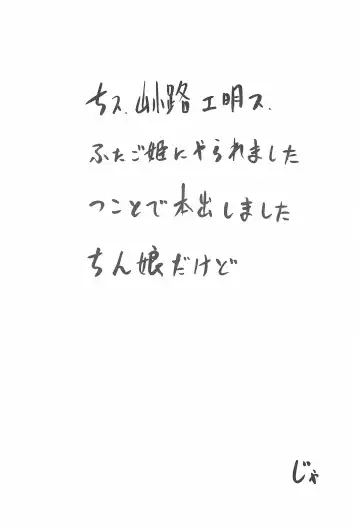 ちス.山小路エ明ス.
ふたご姫にやられました
つことで本出しました
ちん娘だけど
じゃ